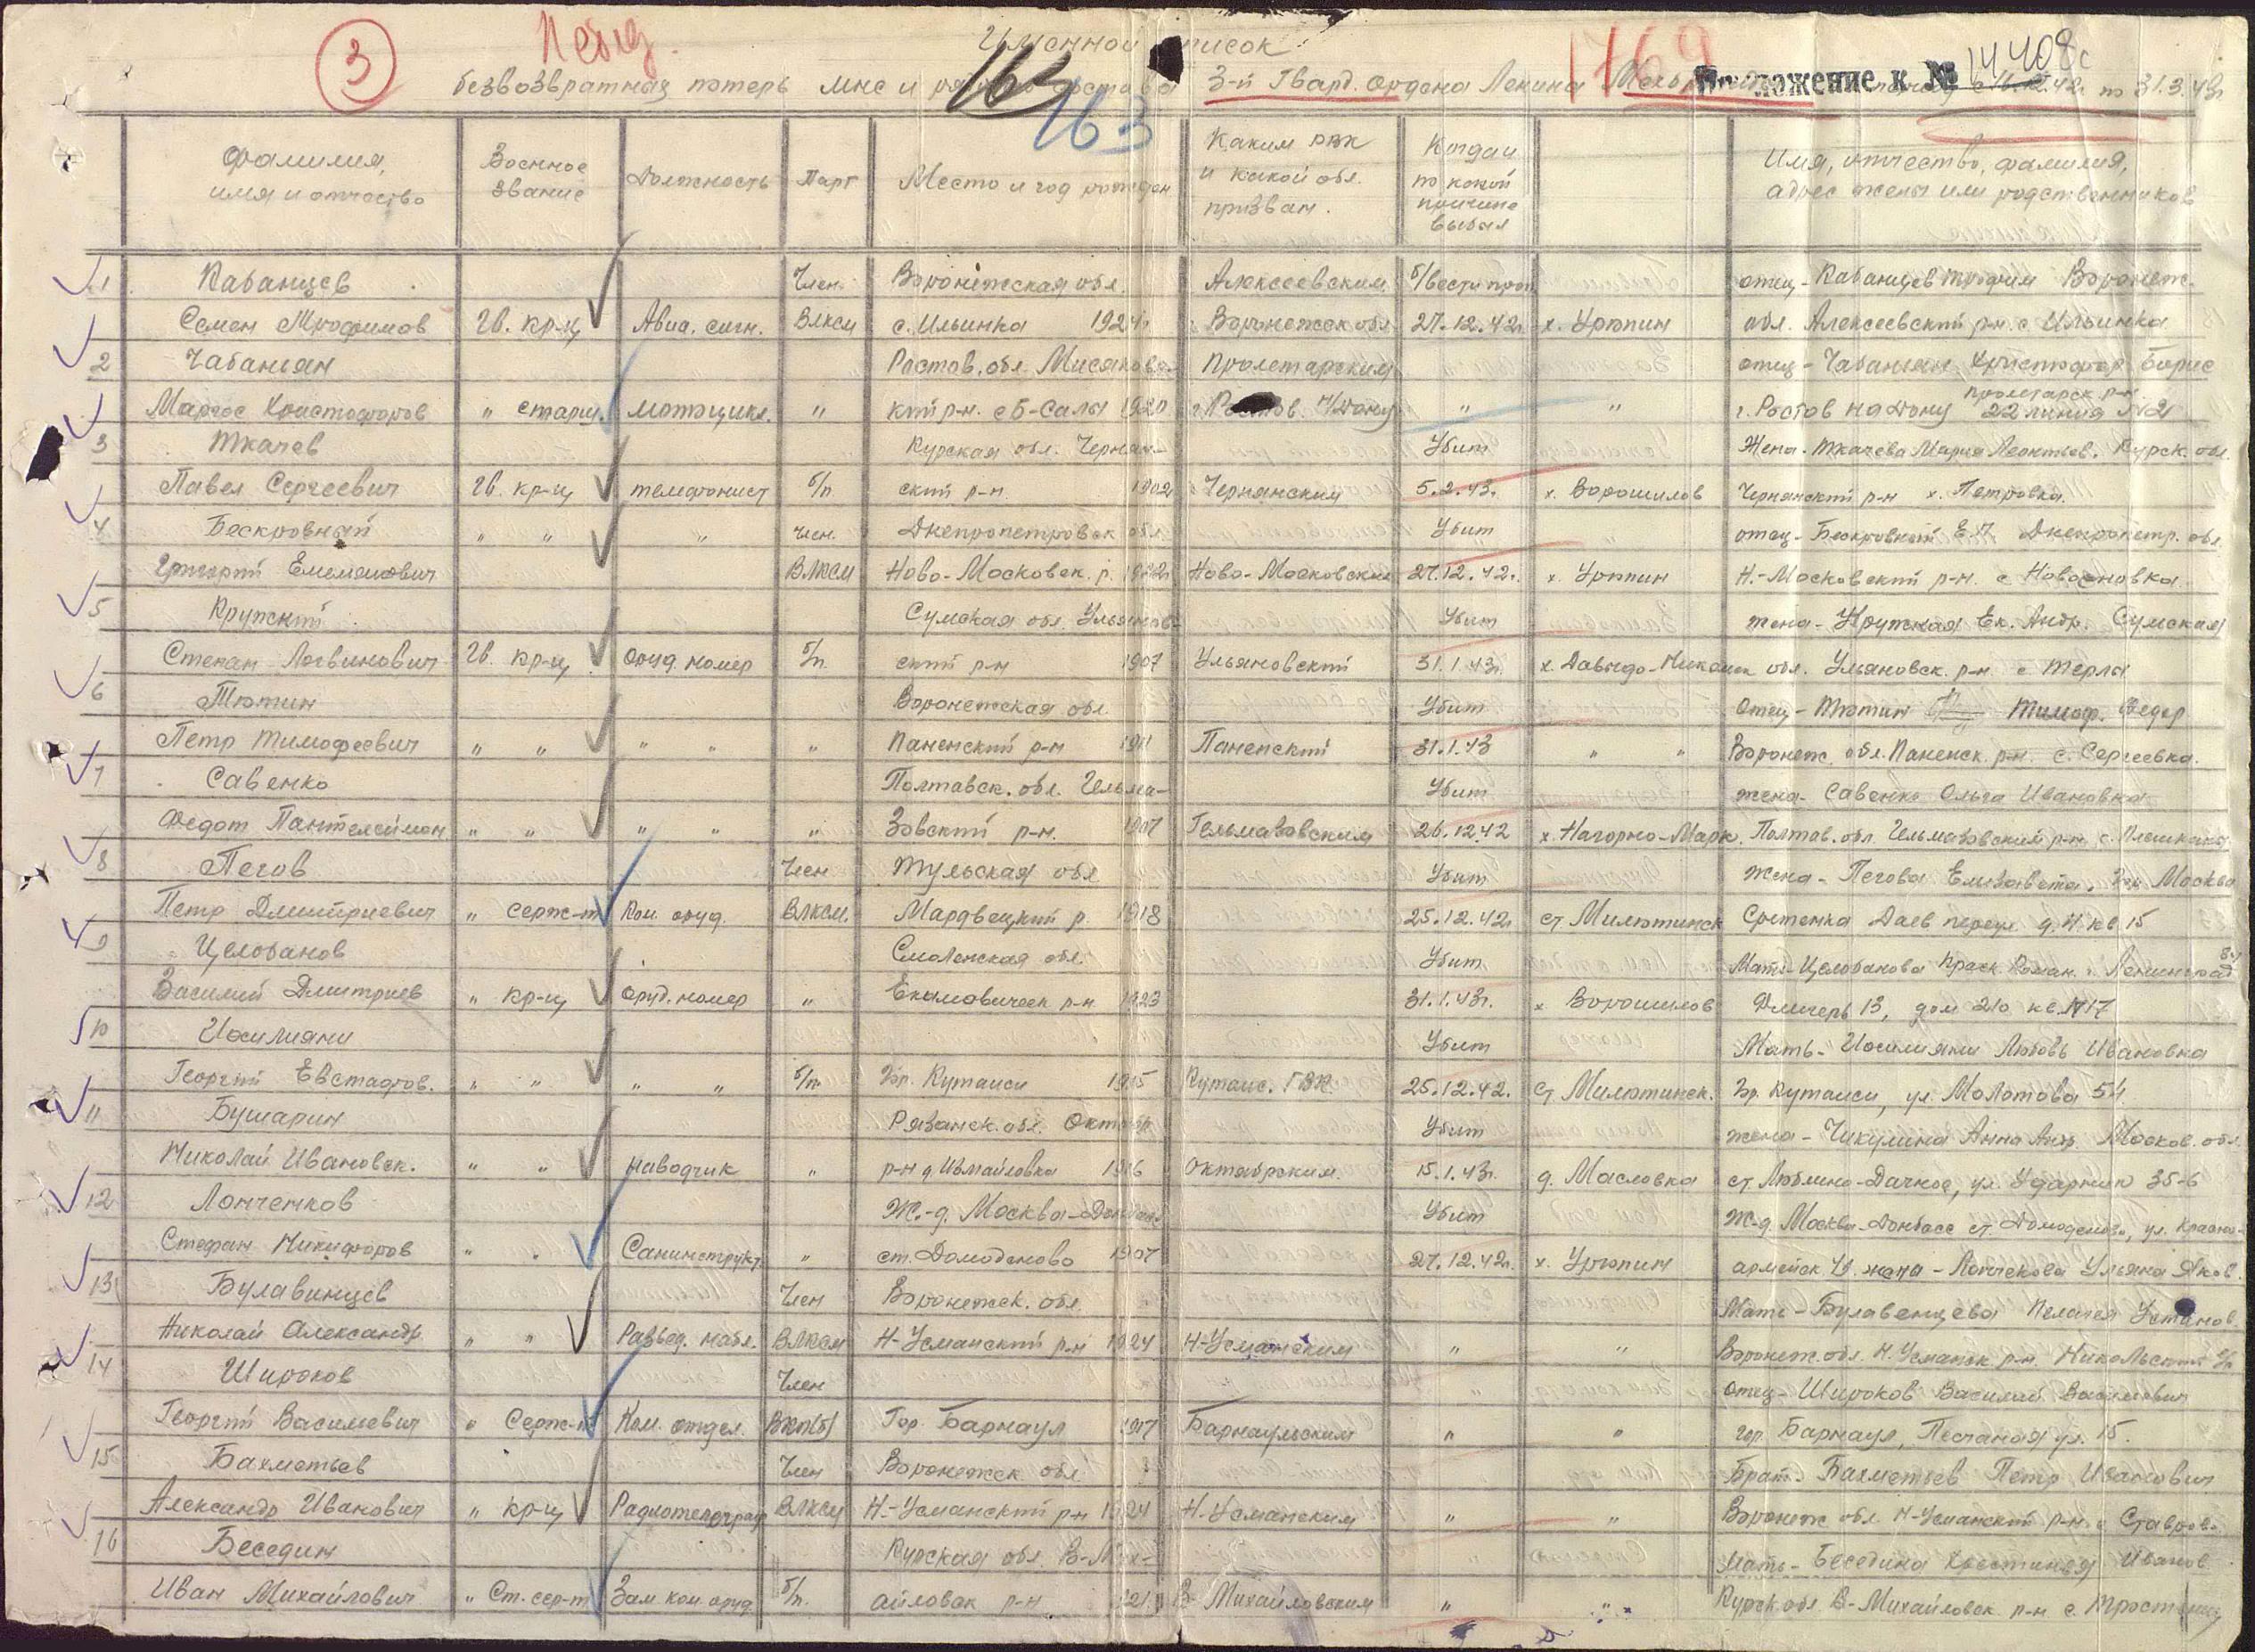 3
Именной список
безвозвратных потерь мнс и состава 3-й Гвард. Ордена Ленина по 31.3.43г
163
Приложение к № 14408с
Фамилия, имя и отчество | Военное звание | Должность | Парт | Место и год рожден | Каким рвк и какой обл. призван. | Когда и по какой причине выбыл | Имя, отчество, фамилия, адрес жены или родственников
1 Кабанцев | Член | Воронежская обл. | Алексеевским | б/вести проп | отец - Кабанцев Трофим Воронеж.
Семен Трофимов | Гв. кр-ц | Авиа. сигн. | ВЛКСМ | с. Ильинка 1924г | Воронежск обл | 27.12.42г. | х. Урюпин | обл. Алексеевский р-н с Ильинка
2 Чабанян | Ростов. обл. Мясников- | Пролетарским | отец - Чабанян Христофор Борис
Маргос Христофоров | " старш. | мотоцикл. | " | кий р-н. с Б-Салы 1920 | г. Ростов. Н/Дону | " | " | г. Ростов на Дону пролетарск р-н 22 линия №2
3 Ткачев | Курская обл. Чернян- | Убит | Жена - Ткачева Мария Леонтьев. Курск. обл.
Павел Сергеевич | Гв. кр-ц | телефонист | б/п | ский р-н 1902 | Чернянским | 5.2.43. | х. Ворошилов | Чернянский р-н х. Петровка.
4 Бескровный | " " | " | член. | Днепропетровск обл. | Убит | " | отец - Бескровный Е.П. Днепропетр. обл
Григорий Емельянович | ВЛКСМ | Ново-Московск. р. 1922г | Ново-Московским | 27.12.42г. | х. Урюпин | Н.-Московский р-н.
5 Кружкий | Сумская обл Ульянов- | Убит | жена - Кружкая Ек. Андр. Сумская
Степан Логвинович | Гв. кр-ц | оруд. номер | б/п. | ский р-н 1907 | Ульяновский | 31.1.43г. | х. Давыдо-Никольск | обл. Ульяновск. р-н с Терла
6 Тютин | Воронежская обл. | Убит | Отец - Тютин Тимоф. Федор
Петр Тимофеевич | " " | " " | " | Паненский р-н 1911 | Паненский | 31.1.43 | " " | Воронеж. обл. Паненск. р-н. с. Сергеевка.
7 Савенко | Полтавск. обл. Гельмя- | Убит | жена - Савенко Ольга Ивановна
Федот Пантелеймон | " " | " " | " | зовский р-н. 1907 | Гельмязовским | 26.12.42 | х. Нагорно-Марк. | Полтав. обл. Гельмязовский р-н с. Плешкани
8 Пегов | Член | Тульская обл | Убит | Жена - Пегова Елизавета, гор Москва
Петр Дмитриевич | " серж-т | Ком. оруд. | ВЛКСМ. | Мордвецкий р. 1918 | 25.12.42г | ст Милютинск | Сретенка Даев переул
9 Целобанов | Смоленская обл. | Убит | Мать - Целобанова Праск. Роман. г. Ленинград
Василий Дмитриев | " кр-ц | оруд. номер | " | Екимовическ р-н 1923 | 31.1.43г. | х Ворошилов | 13, дом 210 кв. 17
10 Иосилиани | Убит | Мать - Иосилиани Любовь Ивановна
Георгий Евстафов. | " " | " " | б/п | Гор. Кутаиси 1915 | Кутаис. ГВК. | 25.12.42. | ст Милютинск. | Гор. Кутаиси, ул Молотова 54
11 Бушарин | Рязанск. обл. Октябр. | Убит | жена - Чикулина Анна Анд. Москов. обл.
Николай Ивановск. | " " | наводчик | " | р-н д Измайловка 1916 | Октябрским. | 15.1.43г. | д. Масловка | ст Люблино-Дачное, ул. Ударник 35-6
12 Лонченков | Ж.-д. Москва-Донбасс | Убит | Ж-д. Москва-Донбасс ст. Домодедово, ул. Красно-
Стефан Никифоров | " " | Санинструкт | " | ст. Домодедово 1907 | 27.12.42г. | х. Урюпин | армейск жена - Лонченкова Ульяна Яков.
13 Булавинцев | Член | Воронежск. обл. | Мать - Булавенцева Пелагея Устинов
Николай Александр. | " " | Развед. набл. | ВЛКСМ | Н-Усманский р-н 1924 | Н-Усманским | " | " | Воронеж. обл. Н. Усманск р-н. Никольский
14 Широков | Член | Отец - Широков Василий Васильевич
Георгий Васильевич | " Серж-т | Ком. отдел. | ВКП(б) | Гор. Барнаул 1917 | Барнаульским | " | " | гор. Барнаул, Песчаная ул. 15.
15 Бахметьев | Член | Воронежск обл | Брат - Бахметьев Петр Иванович
Александр Иванович | " кр-ц | Радиотелеграф | ВЛКСМ | Н-Усманский р-н 1924 | Н-Усманским | " | " | Воронеж обл. Н-Усманский р-н с Ставров.
16 Беседин | Курская обл. В-Мих- | Мать - Беседина Хрестинья Иванов
Иван Михайлович | " Ст. сер-т | Зам ком. оруд. | б/п. | айловск р-н 1921 | В-Михайловским | " | " | Курск обл В-Михайловск р-н с.